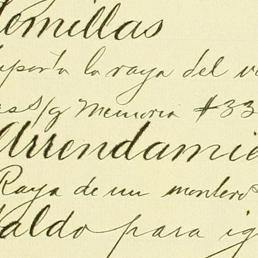 Semillas
importa la raya del
Memoria #33
Arrendamie
Raya de un montero
Saldo para ig